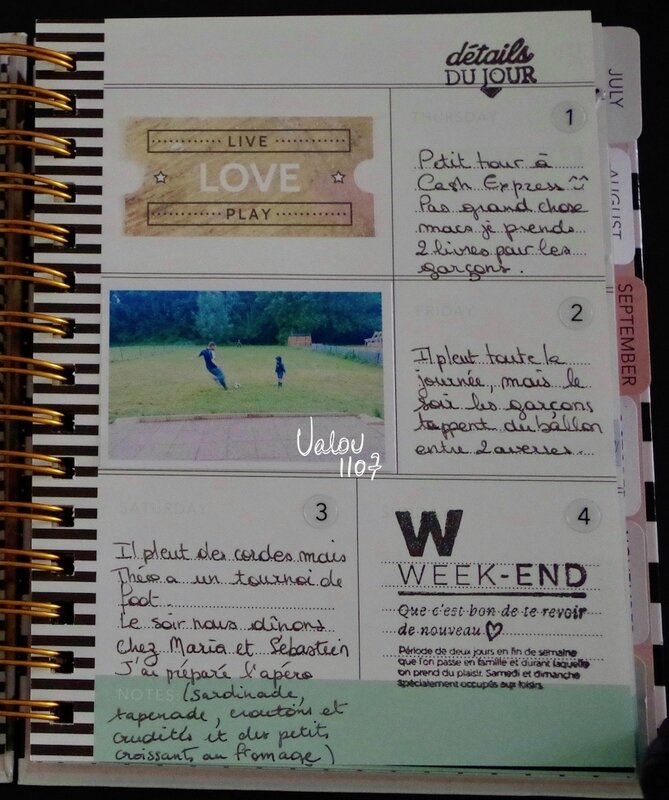 détails
DU JOUR
JULY
AUGUST
SEPTEMBER
LIVE
LOVE
PLAY
THURSDAY
1
Petit tour à
Cash Express
Pas grand chose
mais je prends
2 livres pour les
garçons.
FRIDAY
2
Il pleut toute la
journée, mais le
soir les garçons
tappent du ballon
entre 2 averses...
Valou
1107
SATURDAY
3
Il pleut des cordes mais
Théo a un tournoi de
foot.
Le soir nous dînons
chez Maria et Sébastien
J'ai préparé l'apéro
NOTES (sardinade,
tapenade, croutons et
crudités et des petits
croissants au fromage)
4
W
WEEK-END
Que c'est bon de te revoir
de nouveau
Période de deux jours en fin de semaine
que l'on passe en famille et durant laquelle
on prend du plaisir. Samedi et dimanche
spécialement occupés aux loisirs.